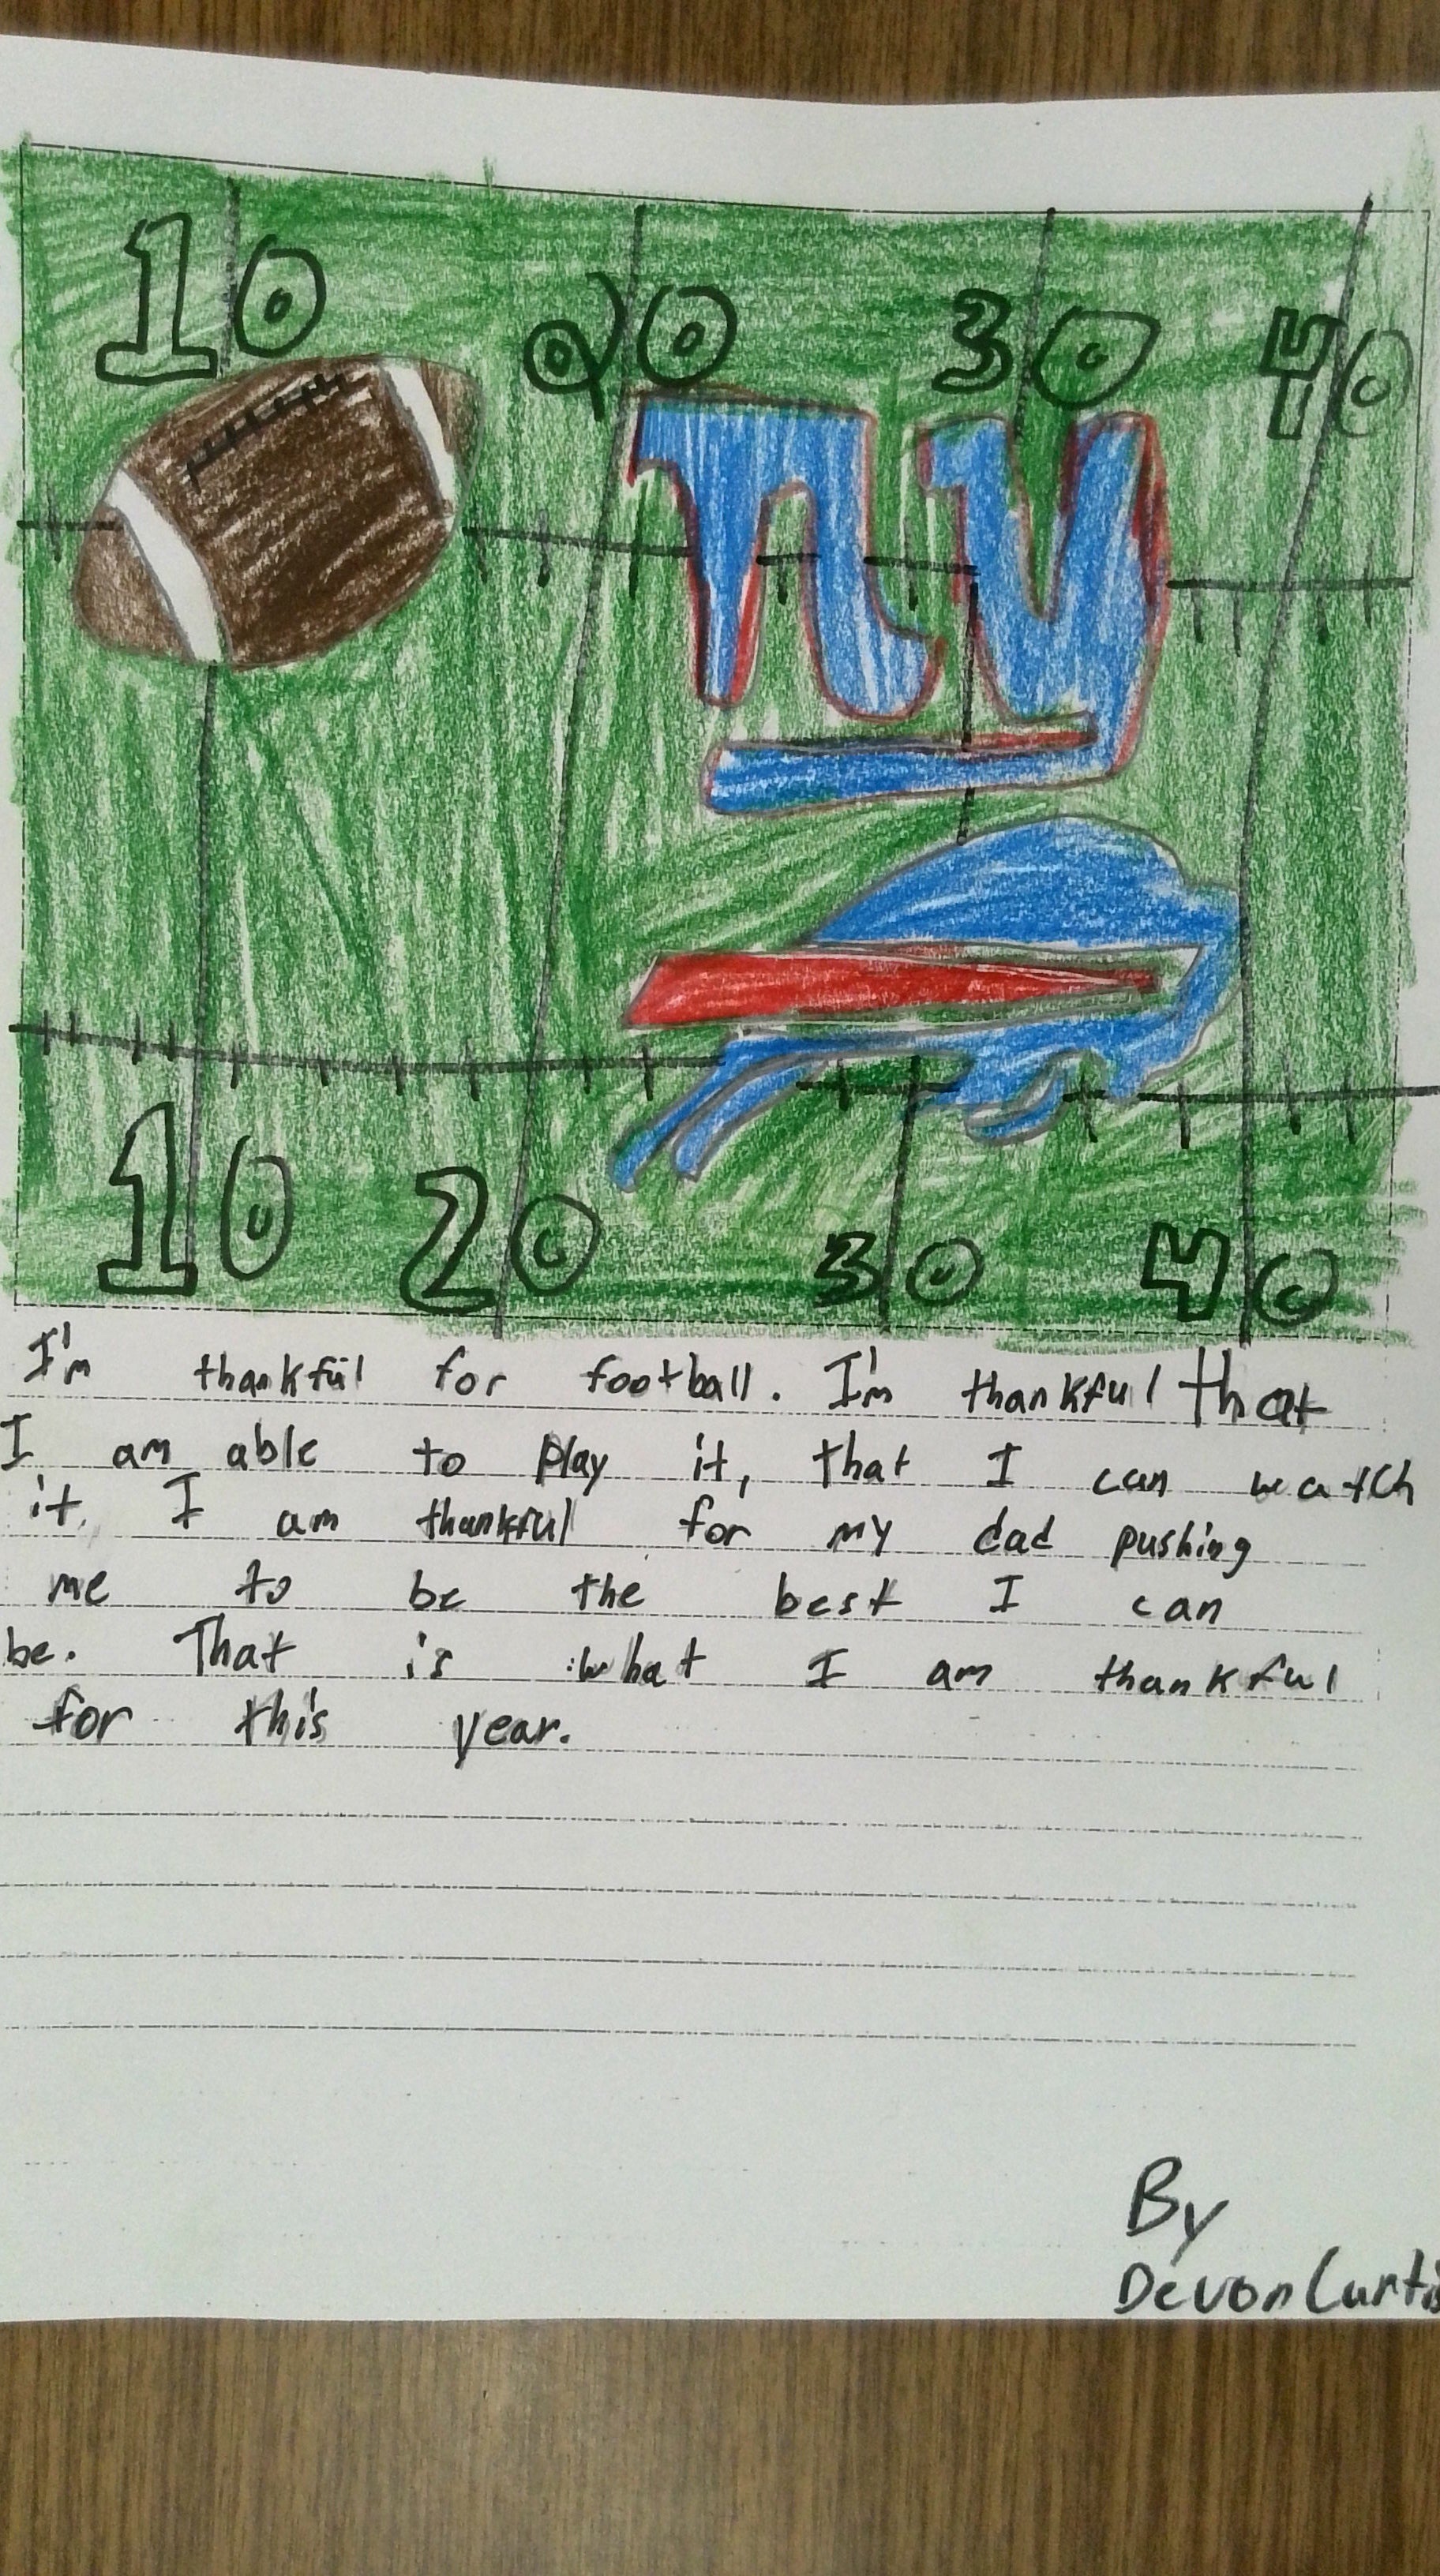 10 20 30 40
ny
10 20 30 40
I'm thankful for football. I'm thankful that
I am able to play it, that I can watch
it. I am thankful for my dad pushing
me to be the best I can
be. That is what I am thankful
for this year.
By
Devon Curtis